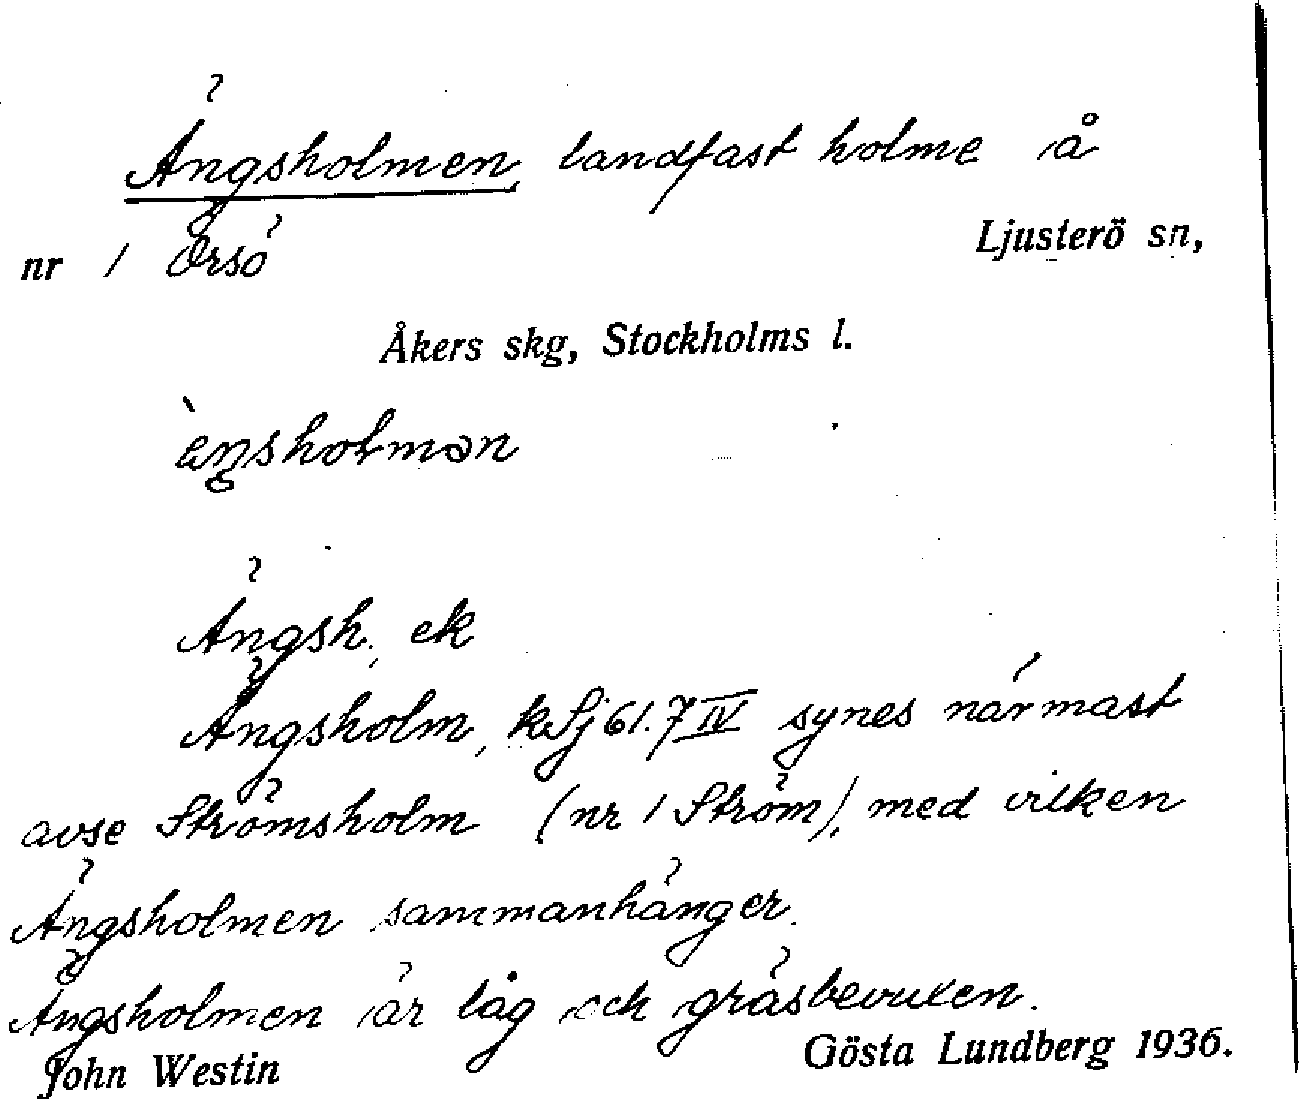 Ängsholmen, landfast holme å
nr 1 Örsö Ljusterö sn,
Åkers skg, Stockholms l.
Ängsh., ek
Ängsholm, kSj 61.7 IV synes närmast
avse Strömsholm (nr 1 Ström), med vilken
Ängsholmen sammanhänger.
Ängsholmen är låg och gräsbevuxen.
John Westin Gösta Lundberg 1936.